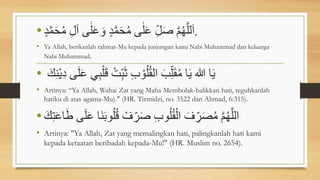 اَللّٰهُمَّ صَلِّ عَلٰى مُحَمَّدٍ وَعَلٰى اٰلِ مُحَمَّدٍ.
Ya Allah, berikanlah rahmat-Mu kepada junjungan kami Nabi Muhammad dan keluarga
Nabi Muhammad.
يَا الله يَا مُقَلِّبَ الْقُلُوْبِ ثَبِّتْ قَلْبِيْ عَلَى دِيْنِكَ
Artinya: “Ya Allah, Wahai Zat yang Maha Membolak-balikkan hati, teguhkanlah
hatiku di atas agama-Mu)." (HR. Tirmidzi, no. 3522 dan Ahmad, 6:315).
اللَّهُمَّ مُصَرِّفَ الْقُلُوبِ صَرِّفْ قُلُوبَنَا عَلَى طَاعَتِكَ
Artinya: "Ya Allah, Zat yang memalingkan hati, palingkanlah hati kami
kepada ketaatan beribadah kepada-Mu!" (HR. Muslim no. 2654).